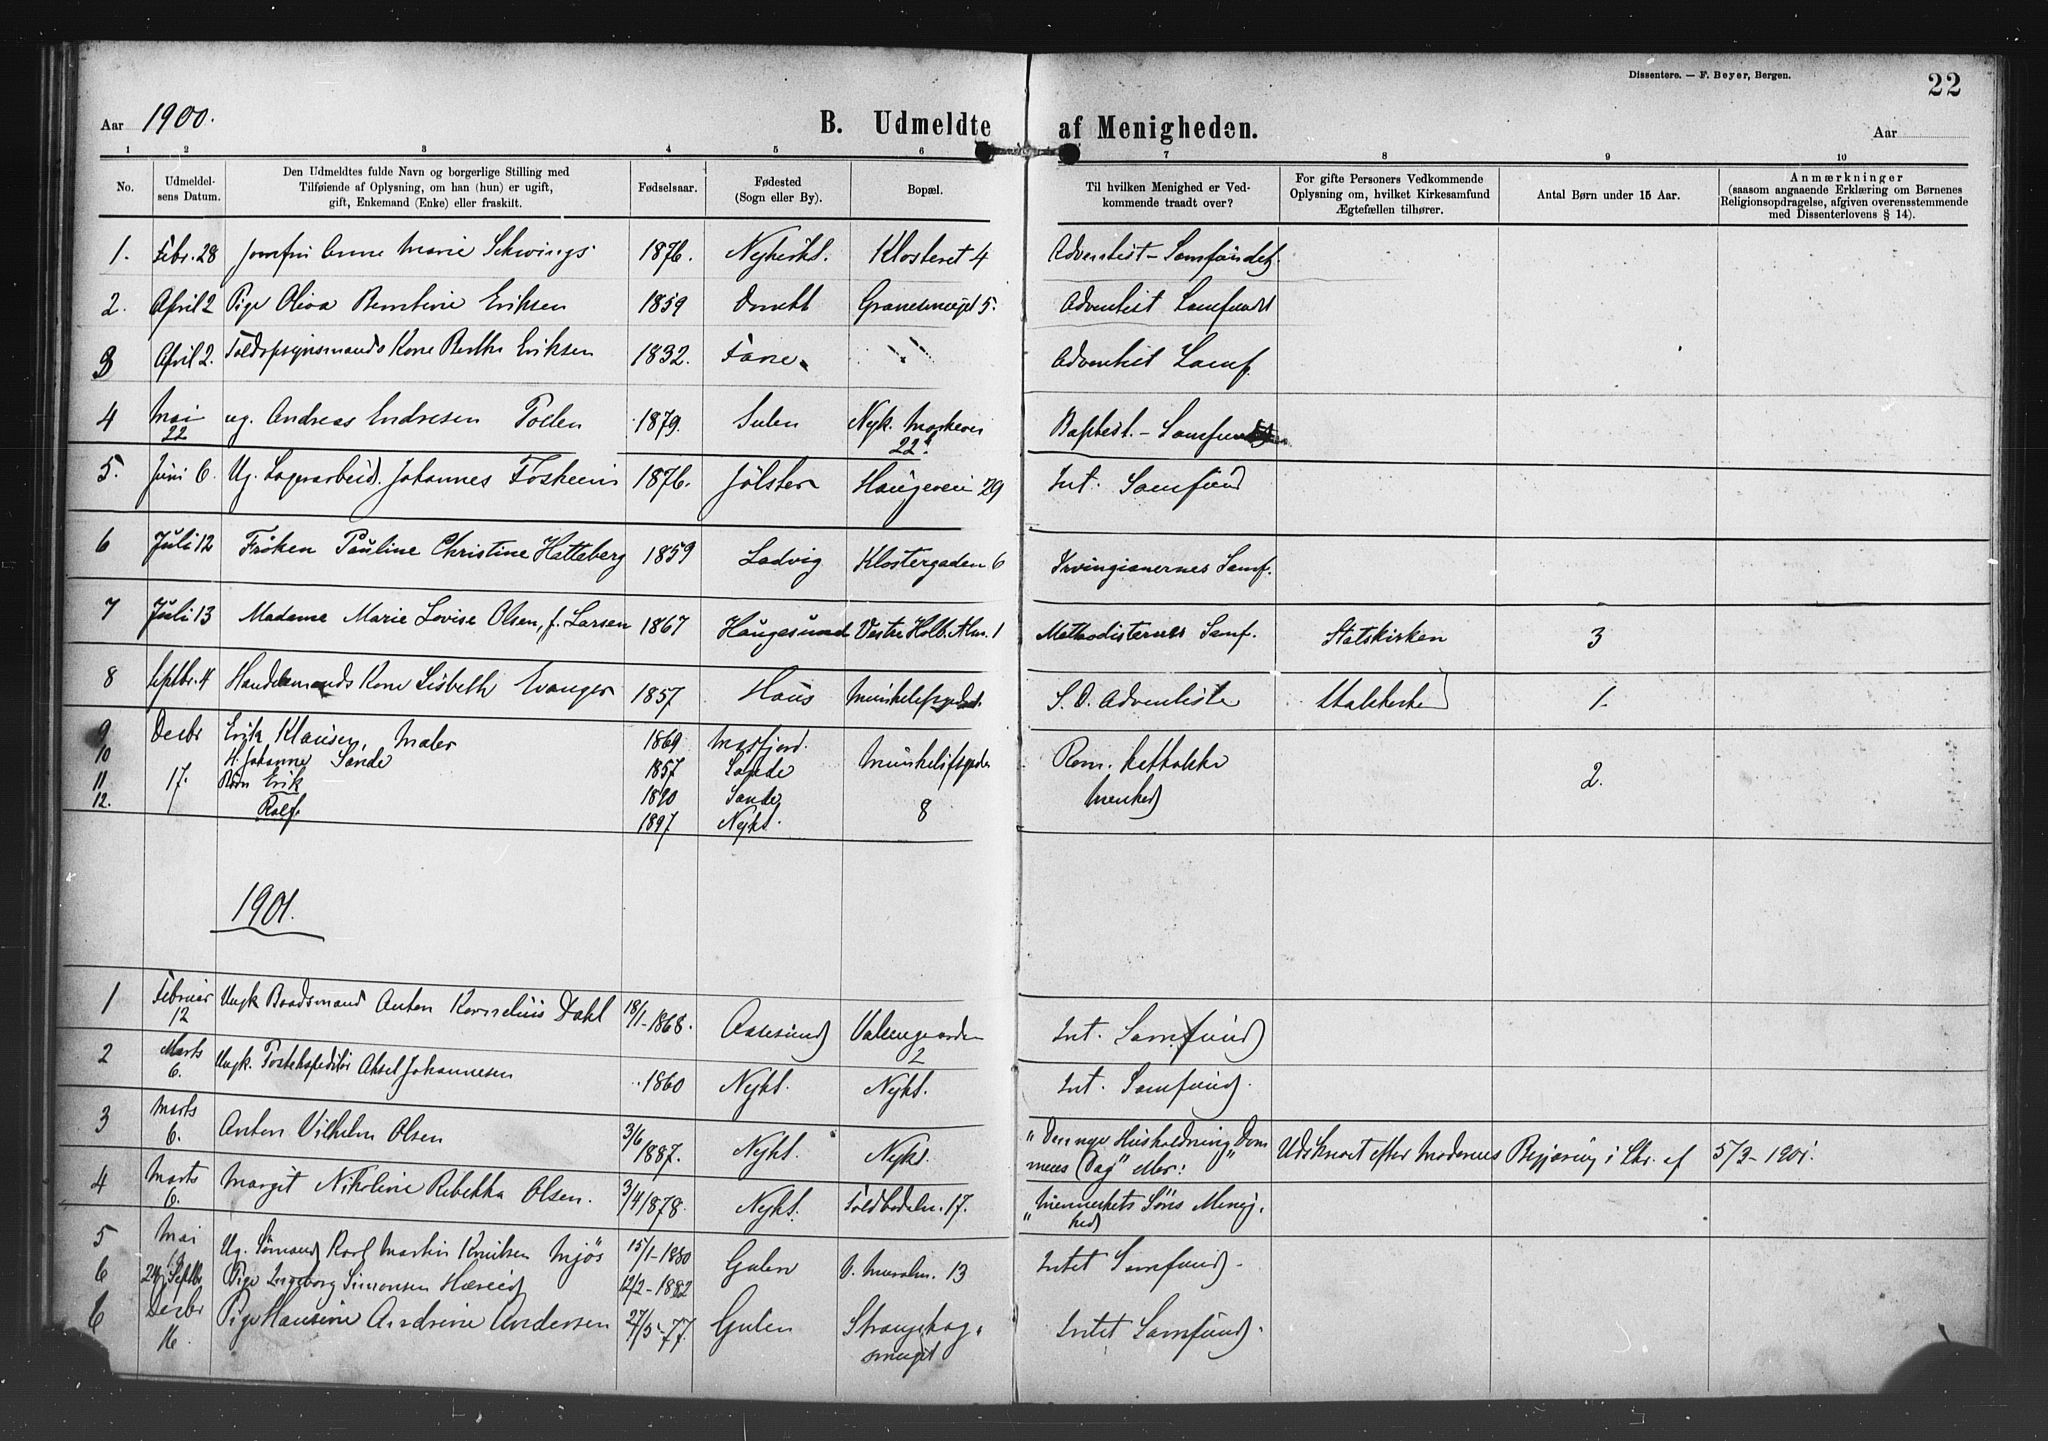 Dissentere. — F. Beyer, Bergen.
22
Aar 1900.
B. Udmeldte af Menigheden.
Aar
1 2 3 4 5 6 7 8 9 10
No.
Udmeldel-
sens Datum.
Den Udmeldtes fulde Navn og borgerlige Stilling med
Tilføiende af Oplysning, om han (hun) er ugift,
gift, Enkemand (Enke) eller fraskilt.
Fødselsaar.
Fødested
(Sogn eller By).
Bopæl.
Til hvilken Menighed er Ved-
kommende traadt over?
For gifte Personers Vedkommende
Oplysning om, hvilket Kirkesamfund
Ægtefællen tilhører.
Antal Børn under 15 Aar.
Anmærkninger
(saasom angaaende Erklæring om Børnenes
Religionsopdragelse, afgiven overensstemmende
med Dissenterlovens § 14).
1. Febr. 28 Jomfru Anne Marie Schwings 1876. Nykirkt. Klosteret 4 Adventist-Samfundet.
2. April 2 Pige Oliva Berntine Eriksen 1859 Domk Granesmuget 5. Adventist Samfundet
3 April 2. Toldopsynsmands Kone Berthe Eriksen 1832. Fane " Adventist Samf.
4 Mai 22 ug. Andreas Endresen 1879. Sulen Nyk. 22 Baptist.- Samfundet
5. Juni 6. Ug. Lagerarbeid. Johannes Fosheim 1876. Jölster Haugeveien 29 Int. Samfund
6 Juli 12 Frøken Pauline Christine Hatteberg 1859 Ladvig Klostergaden 6 Irvingianernes Samf.
7 Juli 13 Madame Marie Lovise Olsen, f. Larsen 1867 Haugesund Vestre Holb. Alm. 1 Methodisternes Samf. Statskirken 3
8 Septbr. 4 Handelsmands Kone Lisbeth Evanger 1857 Haus S. D. Adventiste Statskirke 1
9 Decbr Erik Klausen, Maler 1869 Masfjord.
10 H. Johanne Sande 1857 Sande Rom. katholske
11 17. Børn Erik 1890 Sande 2.
12. Rolf 1897 Nykt. 8
1901.
1 Februar 12 Ungk Baadsmand Anton Kornelius Dahl 18/1-1868. Aalesund Valengaarden 2 Int. Samfund
2 Marts 6. Ungk. Postekspeditör Aksel Johannesen 1860 Nykt. Nykt. Int. Samfund.
3 Marts 6. Anton Vilhelm Olsen 3/6 1887. Nykt. Nykt. "Den nye Husholdning" Dom
menes Dag" eller: Udskrevet efter Moderens Begjæring i Skr. af 5/3-1901.
4 Marts 6. Margit Nikoline Rebekka Olsen. 3/4 1878. Nykt. Toldbodalm. 17. "Menneskets Söns Menig,
hed
5 Mai Ug. Sömand Karl Martin Knutsen Mjös 15/1-1880 Gulen V. Muralm. 13 Intet Samfund.
6 24 Septbr Pige Ingeborg Simonsen 12/2-1882
6 Decbr 16. Pige Hansine Andrine Andersen 27/5-77. Gulen Strangehag.
smuget Intet Samfund.